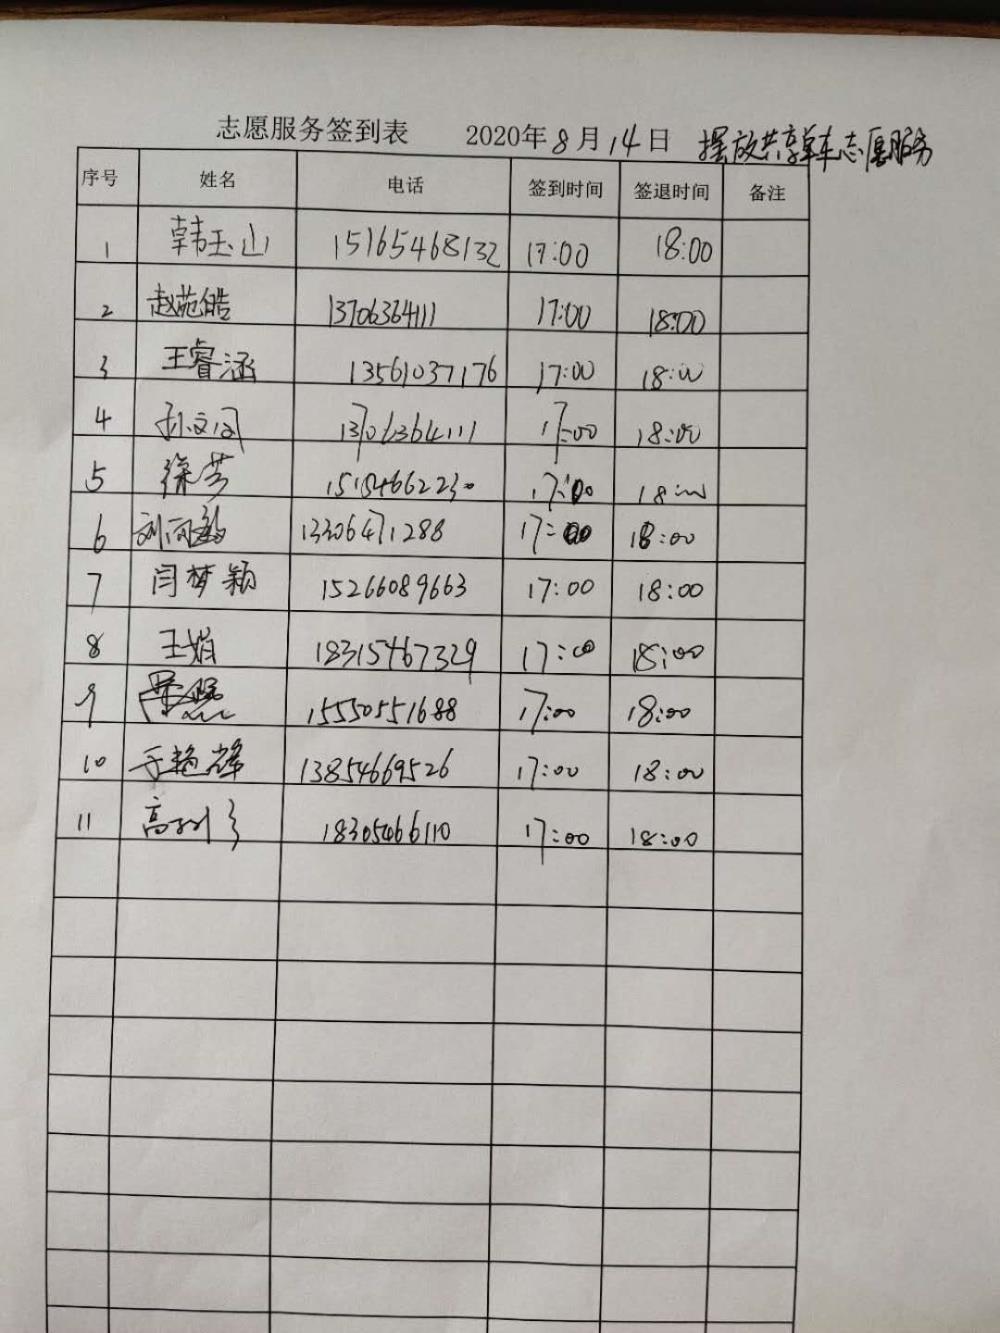 志愿服务签到表 2020年8月14日 摆放共享单车志愿服务
序号 姓名 电话 签到时间 签退时间 备注
1 韩玉山 15165468132 17:00 18:00
2 赵苑皓 13706364111 17:00 18:00
3 王睿涵 13561037176 17:00 18:00
4 孙文闵 13706364111 17:00 18:00
5 徐芳 15154662230 17:00 18:00
6 13306471288 17:00 18:00
7 闫梦颖 15266089663 17:00 18:00
8 王娟 18315467329 17:00 18:00
9 15550551688 17:00 18:00
10 于艳辉 13854669526 17:00 18:00
11 18305466110 17:00 18:00